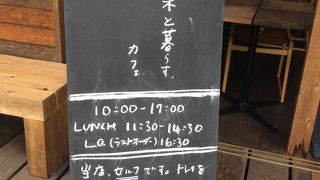 木と暮らす.
カフェ
10:00-17:00
LUNCH 11:30-14:30
L.O.(ラストオーダー)16:30
当店、セルフです。トレイを